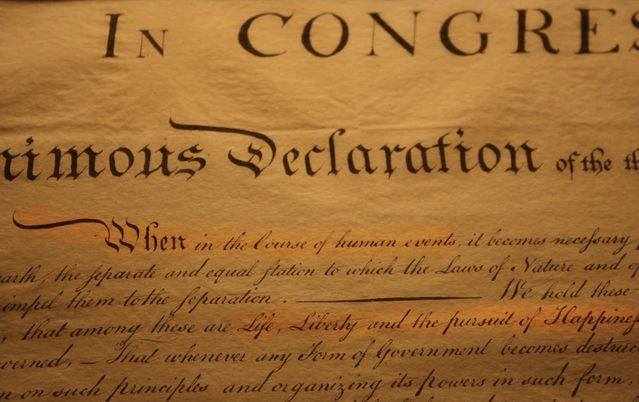 In CONGRES
nimous Declaration of the th
When in the Course of human events, it becomes necessary
earth, the separate and equal station to which the Laws of Nature and of
impel them to the separation. We hold these
, that among these are Life, Liberty and the pursuit of Happiness
verned, — That whenever any Form of Government becomes destruc
n on such principles and organizing its powers in such form,